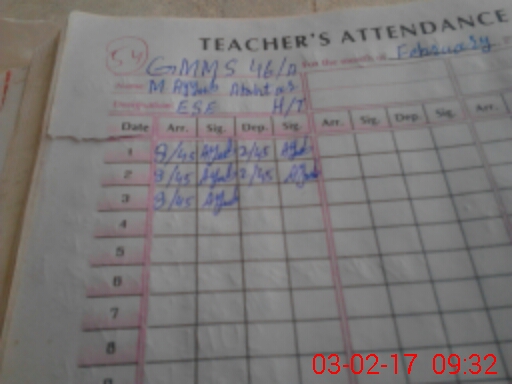 TEACHER'S ATTENDANCE
5,4
GMMS 46/D
for the month of February
Name M Ayyub Akhtar
Designation ESE H/T
Date Arr. Sig. Dep. Sig. Arr. Sig. Dep. Sig. Arr.
1 8/45 Ayub 2/45 Ayub
2 8/45 Ayub 2/45 Ayub
3 8/45 Ayub
4
5
6
7
8
9
03-02-17 09:32